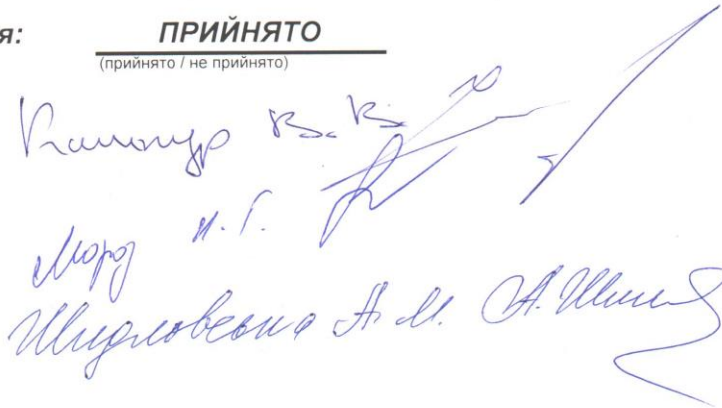 я: ПРИЙНЯТО
(прийнято / не прийнято)
В. В.
Мороз Н. Г.
Шидловська А. М. А. Шид